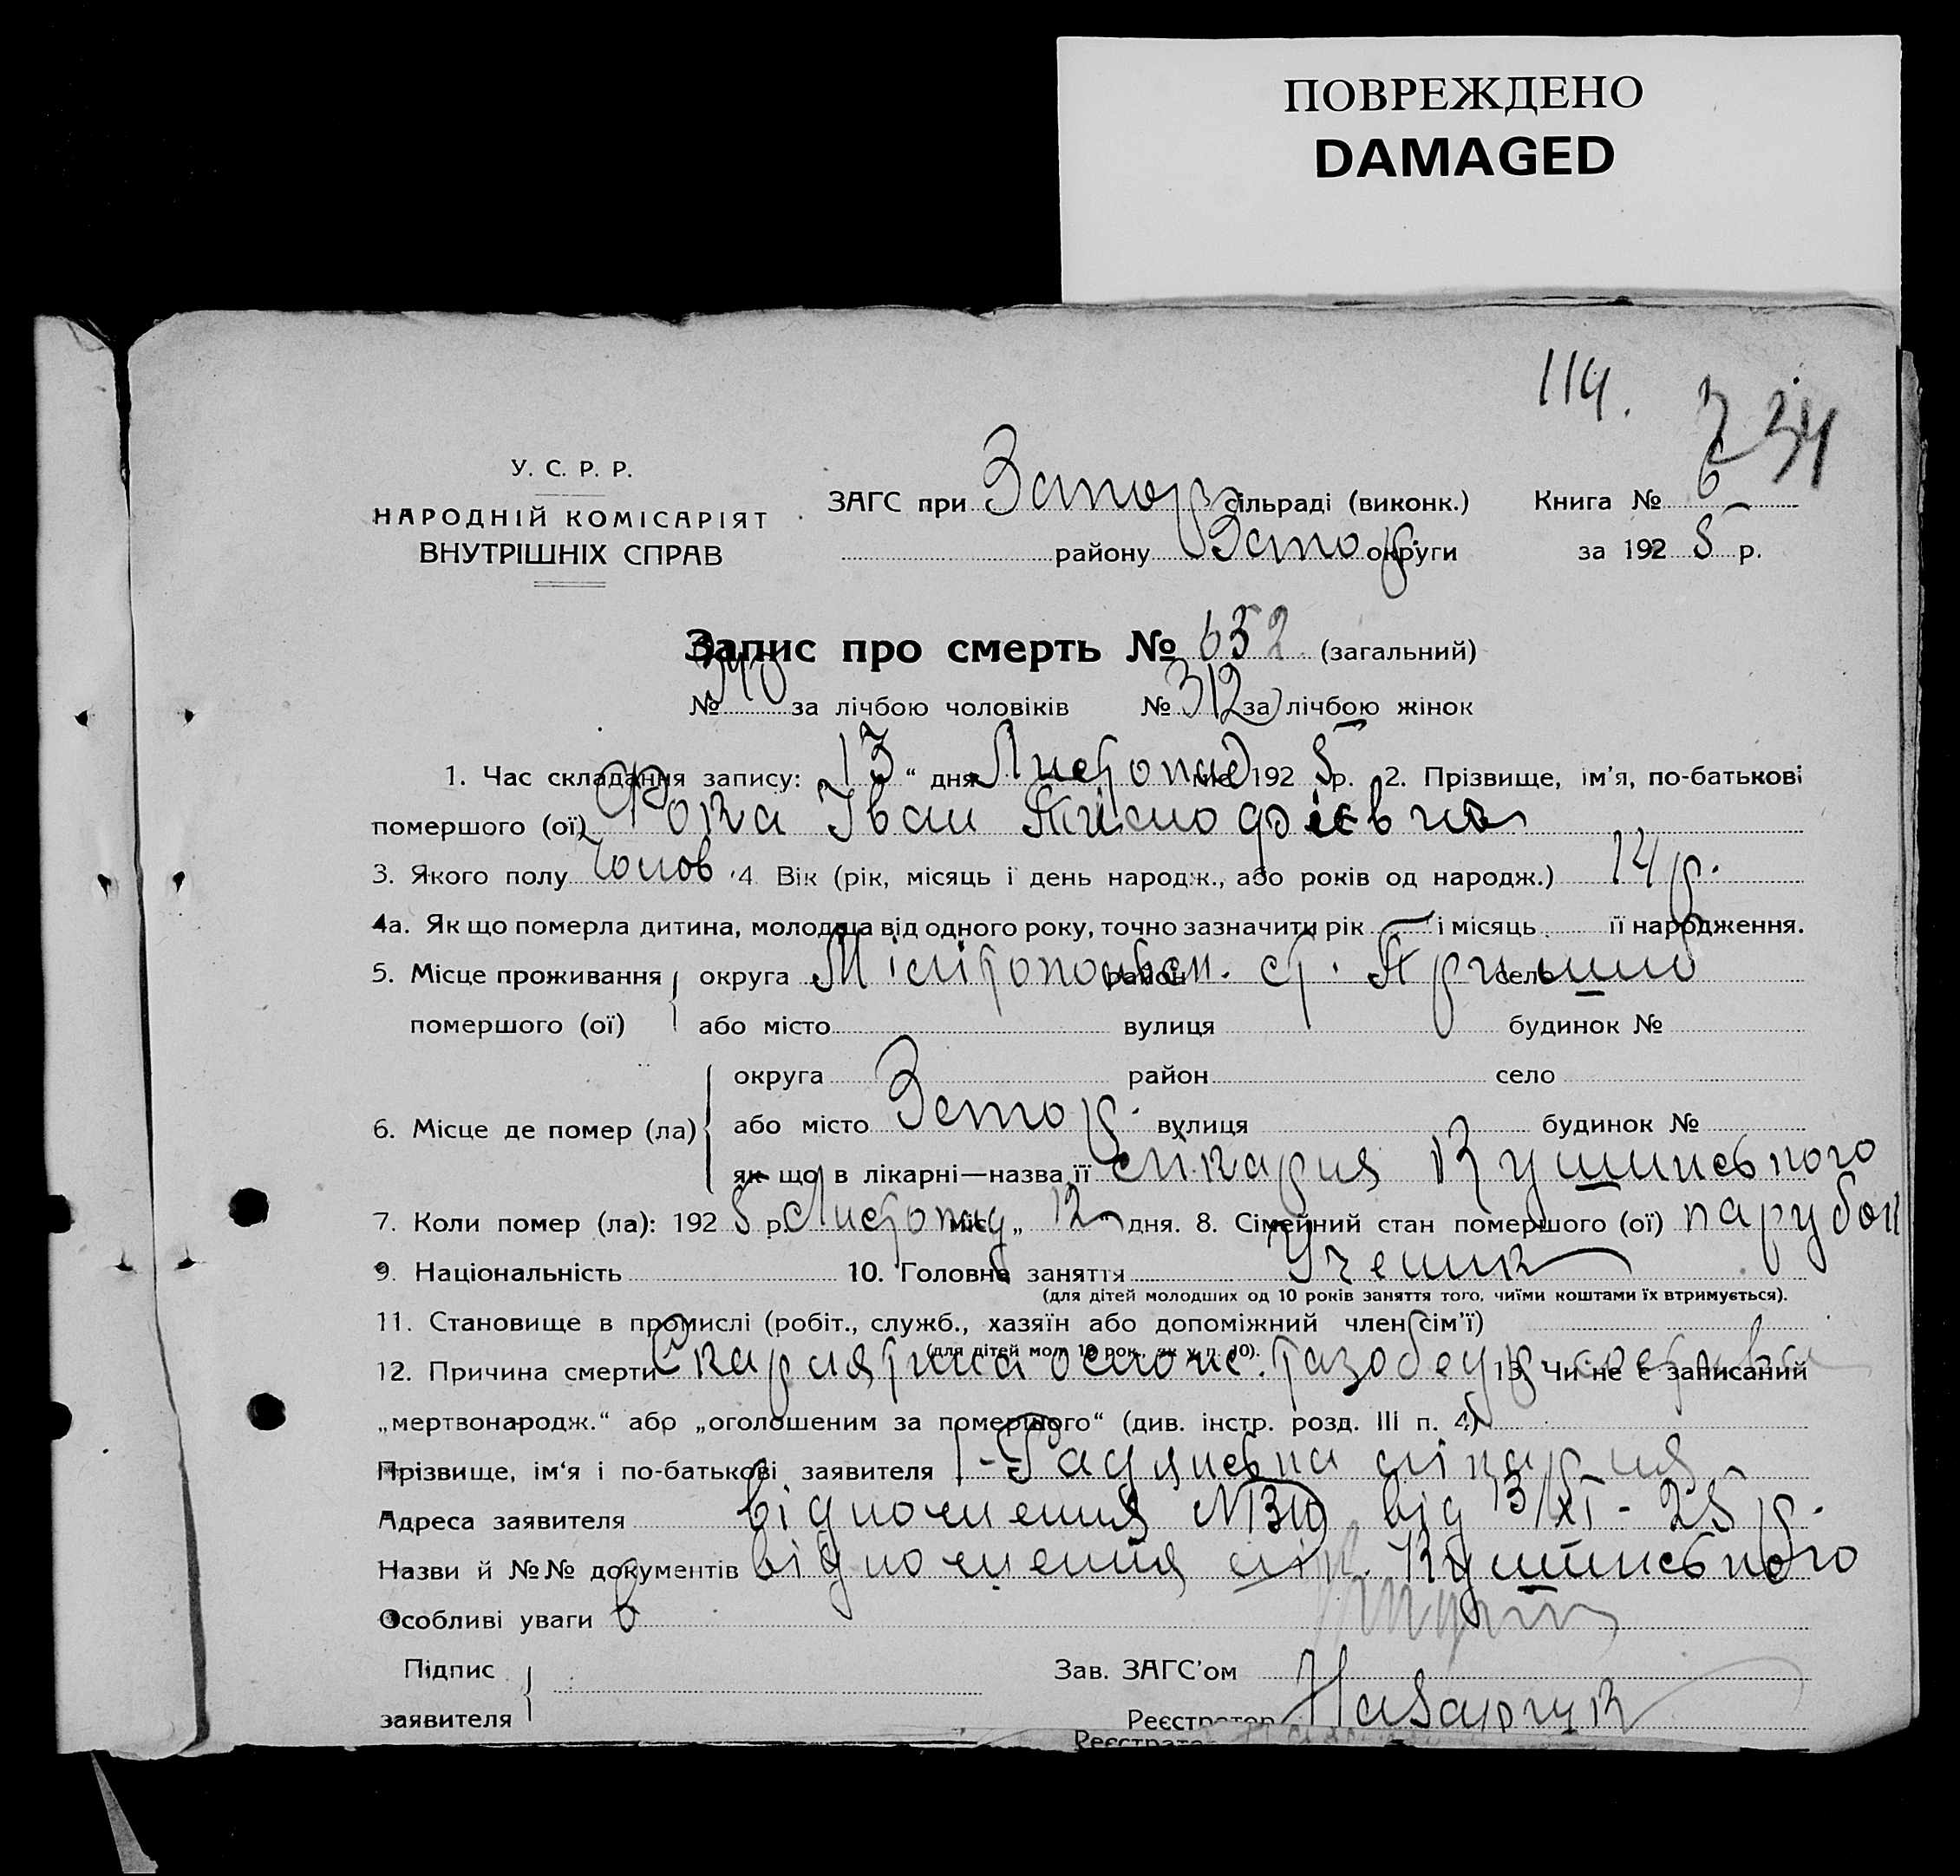 ПОВРЕЖДЕНО
DAMAGED
114.
234
У. С. Р. Р.
НАРОДНІЙ КОМІСАРІЯТ
ВНУТРІШНІХ СПРАВ
ЗАГС при Запор сільраді (виконк.) Книга № 6
району Запор округи за 1925 р.
Запис про смерть № 652 (загальний)
№ 340 за лічбою чоловіків № 312 за лічбою жінок
1. Час складання запису: 13 “ дня Листопад міс. 1925 р. 2. Прізвище, ім’я, по-батькові
помершого (ої) Фока Іван
3. Якого полу Чолов 4 Вік (рік, місяць і день народж., або років од народж.) 14 р.
4а. Як що померла дитина, молодша від одного року, точно зазначити рік – і місяць її народження.
5. Місце проживання округа район ст. село
помершого (ої) або місто вулиця будинок №
округа район село
6. Місце де помер (ла) або місто Запор. вулиця будинок №
як що в лікарні—назва її лікарня
7. Коли помер (ла): 1925 р. Листопад міс. „ 12 дня. 8. Сімейний стан помершого (ої) парубок
9. Національність 10. Головне заняття Ученик
(для дітей молодших од 10 років заняття того, чиїми коштами їх втримується).
11. Становище в промислі (робіт., служб., хазяїн або допоміжний член сім’ї)
(для дітей мол. 10 рок., як у п. 10).
12. Причина смерти Скарлятина 13. Чи не є записаний
„мертвонародж.“ або „оголошеним за помершого“ (див. інстр. розд. III п. 4)
Прізвище, ім‘я і по-батькові заявителя 1-Радянська лікарня
Адреса заявителя відношення від 13/XI - 25 р.
Назви й №№ документів відношення лік.
Особливі уваги
Підпис Зав. ЗАГС’ом
заявителя Реєстратор
Реєстратор